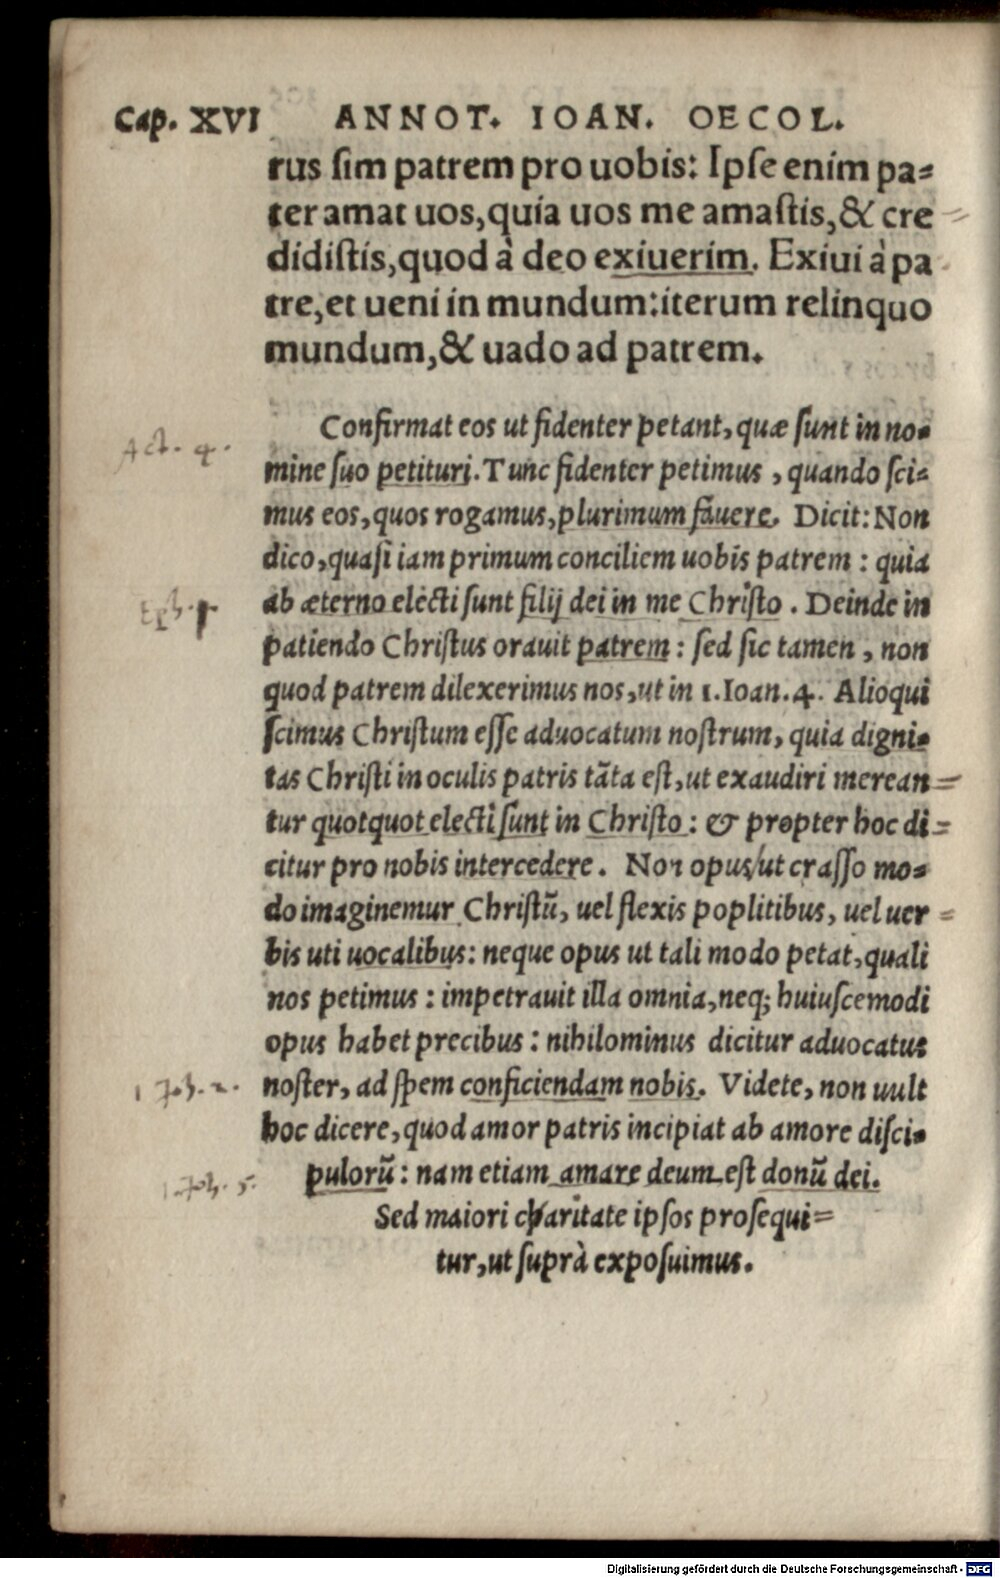 Cap. XVI ANNOT. IOAN. OECOL.
rus sim patrem pro uobis: Ipse enim pa=
ter amat uos, quia uos me amastis, & cre
didistis, quod à deo exiuerim. Exiui à pa
tre, et ueni in mundum: iterum relinquo
mundum, & uado ad patrem.
Confirmat eos ut fidenter petant, quæ sunt in no=
Act. 4.
mine suo petituri. Tunc fidenter petimus, quando sci=
mus eos, quos rogamus, plurimum fauere. Dicit: Non
dico, quasi iam primum conciliem uobis patrem: quia
Eph. 1.
ab æterno electi sunt filij dei in me Christo. Deinde in
patiendo Christus orauit patrem: sed sic tamen, non
quod patrem dilexerimus nos, ut in 1. Ioan. 4. Alioqui
scimus Christum esse aduocatum nostrum, quia digni=
tas Christi in oculis patris tãta est, ut exaudiri merean=
tur quotquot electi sunt in Christo: & propter hoc di=
citur pro nobis intercedere. Non opus/ut crasso mo=
do imaginemur Christũ, uel flexis poplitibus, uel uer=
bis uti uocalibus: neque opus ut tali modo petat, quali
nos petimus: impetrauit illa omnia, neq; huiuscemodi
opus habet precibus: nihilominus dicitur aduocatus
1 Joh. 2.
noster, ad spem conficiendam nobis. Videte, non uult
hoc dicere, quod amor patris incipiat ab amore disci=
1. Joh. 5.
pulorũ: nam etiam amare deum est donũ dei.
Sed maiori charitate ipsos prosequi=
tur, ut suprà exposuimus.
Digitalisierung gefördert durch die Deutsche Forschungsgemeinschaft - DFG